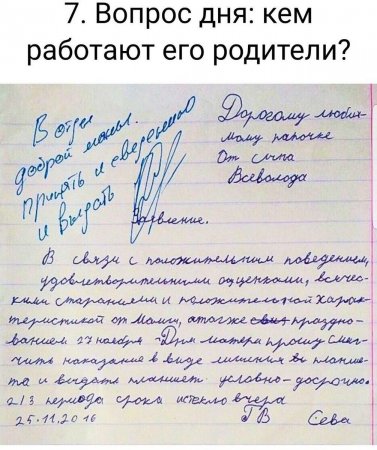 7. Вопрос дня: кем
работают его родители?
В отдел
доброй мамы.
Принять к сведению
и выдать
Дорогому люби-
мому папочке
От сына
Всеволода
Заявление.
В связи с положительным поведением,
удовлетворительными оценками, всячес-
кими стараниями и положительной харак-
теристикой от Мамы, а также праздно-
ванием 27 ноября - Дня матери прошу смяг-
чить наказание в виде лишения планше-
та и выдать планшет условно-досрочно.
2/3 периода срока истекло вчера
25.11.2016 Сева